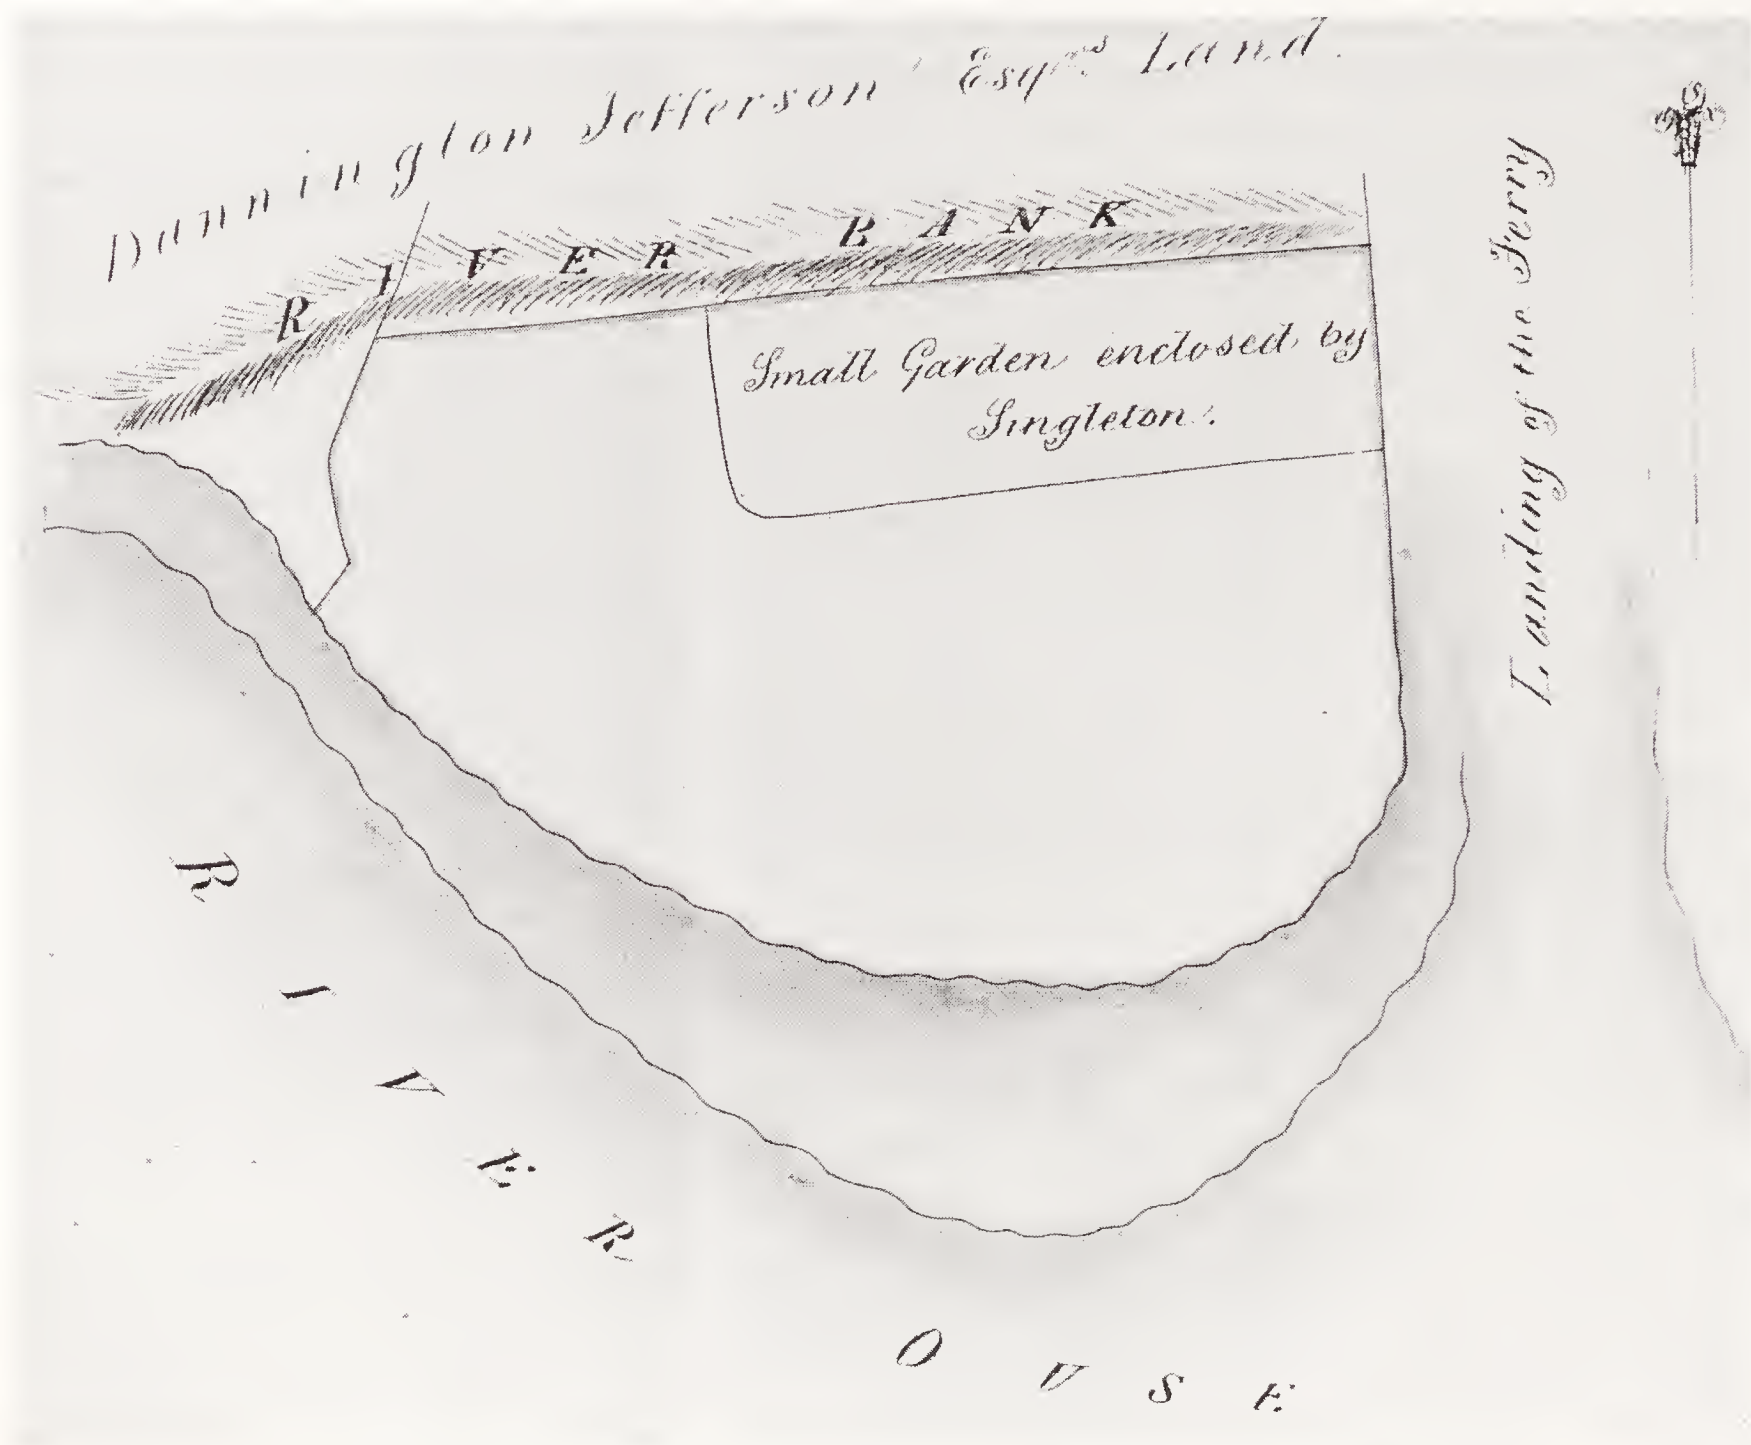 Dunnington Jefferson Esqrs Land.
RIVER BANK
Small Garden enclosed by
Singleton.
Landing of the Ferry
RIVER OUSE